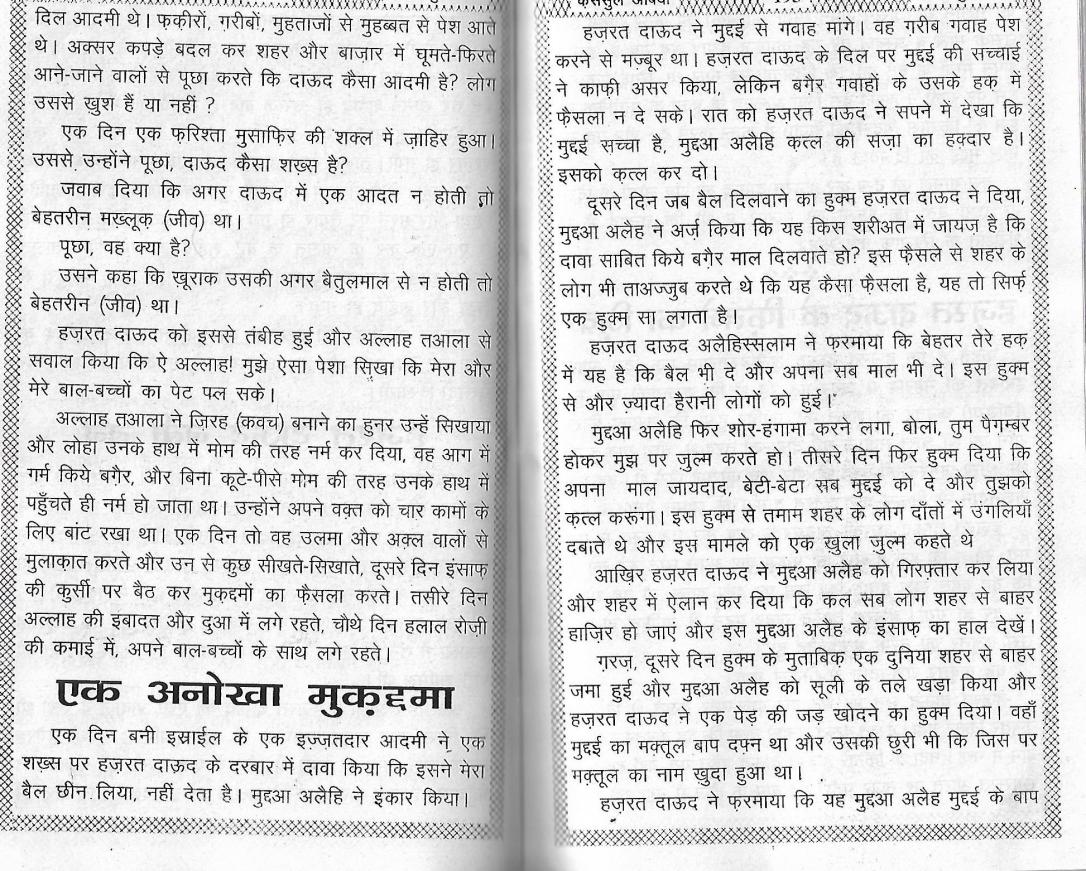 दिल आदमी थे। फ़कीरों, ग़रीबों, मुहताजों से मुहब्बत से पेश आते
थे। अक्सर कपड़े बदल कर शहर और बाज़ार में घूमते-फिरते
आने-जाने वालों से पूछा करते कि दाऊद कैसा आदमी है? लोग
उससे ख़ुश हैं या नहीं ?
एक दिन एक फ़रिश्ता मुसाफ़िर की शक्ल में ज़ाहिर हुआ।
उससे उन्होंने पूछा, दाऊद कैसा शख़्स है?
जवाब दिया कि अगर दाऊद में एक आदत न होती तो
बेहतरीन मख़्लूक़ (जीव) था।
पूछा, वह क्या है?
उसने कहा कि ख़ूराक उसकी अगर बैतुलमाल से न होती तो
बेहतरीन (जीव) था।
हज़रत दाऊद को इससे तंबीह हुई और अल्लाह तआला से
सवाल किया कि ऐ अल्लाह! मुझे ऐसा पेशा सिखा कि मेरा और
मेरे बाल-बच्चों का पेट पल सके।
अल्लाह तआला ने ज़िरह (कवच) बनाने का हुनर उन्हें सिखाया
और लोहा उनके हाथ में मोम की तरह नर्म कर दिया, वह आग में
गर्म किये बग़ैर, और बिना कूटे-पीसे मोम की तरह उनके हाथ में
पहुँचते ही नर्म हो जाता था। उन्होंने अपने वक़्त को चार कामों के
लिए बांट रखा था। एक दिन तो वह उलमा और अक़्ल वालों से
मुलाक़ात करते और उन से कुछ सीखते-सिखाते, दूसरे दिन इंसाफ़
की कुर्सी पर बैठ कर मुक़द्दमों का फ़ैसला करते। तसीरे दिन
अल्लाह की इबादत और दुआ में लगे रहते, चौथे दिन हलाल रोज़ी
की कमाई में, अपने बाल-बच्चों के साथ लगे रहते।
एक अनोखा मुक़द्दमा
एक दिन बनी इस्राईल के एक इज़्ज़तदार आदमी ने एक
शख़्स पर हज़रत दाऊद के दरबार में दावा किया कि इसने मेरा
बैल छीन लिया, नहीं देता है। मुद्दआ अलैहि ने इंकार किया।
हज़रत दाऊद ने मुद्दई से गवाह मांगे। वह ग़रीब गवाह पेश
करने से मज़्बूर था। हज़रत दाऊद के दिल पर मुद्दई की सच्चाई
ने काफ़ी असर किया, लेकिन बग़ैर गवाहों के उसके हक़ में
फ़ैसला न दे सके। रात को हज़रत दाऊद ने सपने में देखा कि
मुद्दई सच्चा है, मुद्दआ अलैहि क़त्ल की सज़ा का हक़्दार है।
इसको क़त्ल कर दो।
दूसरे दिन जब बैल दिलवाने का हुक्म हज़रत दाऊद ने दिया,
मुद्दआ अलैह ने अर्ज़ किया कि यह किस शरीअत में जायज़ है कि
दावा साबित किये बग़ैर माल दिलवाते हो? इस फ़ैसले से शहर के
लोग भी ताअज्जुब करते थे कि यह कैसा फ़ैसला है, यह तो सिर्फ़
एक हुक्म सा लगता है।
हज़रत दाऊद अलैहिस्सलाम ने फ़रमाया कि बेहतर तेरे हक़
में यह है कि बैल भी दे और अपना सब माल भी दे। इस हुक्म
से और ज़्यादा हैरानी लोगों को हुई।
मुद्दआ अलैहि फिर शोर-हंगामा करने लगा, बोला, तुम पैग़म्बर
होकर मुझ पर ज़ुल्म करते हो। तीसरे दिन फिर हुक्म दिया कि
अपना माल जायदाद, बेटी-बेटा सब मुद्दई को दे और तुझको
क़त्ल करूंगा। इस हुक्म से तमाम शहर के लोग दाँतों में उंगलियाँ
दबाते थे और इस मामले को एक खुला ज़ुल्म कहते थे
आख़िर हज़रत दाऊद ने मुद्दआ अलैह को गिरफ़्तार कर लिया
और शहर में ऐलान कर दिया कि कल सब लोग शहर से बाहर
हाज़िर हो जाएं और इस मुद्दआ अलैह के इंसाफ़ का हाल देखें।
ग़रज़, दूसरे दिन हुक्म के मुताबिक़ एक दुनिया शहर से बाहर
जमा हुई और मुद्दआ अलैह को सूली के तले खड़ा किया और
हज़रत दाऊद ने एक पेड़ की जड़ खोदने का हुक्म दिया। वहाँ
मुद्दई का मक़्तूल बाप दफ़्न था और उसकी छुरी भी कि जिस पर
मक़्तूल का नाम ख़ुदा हुआ था।
हज़रत दाऊद ने फ़रमाया कि यह मुद्दआ अलैह मुद्दई के बाप